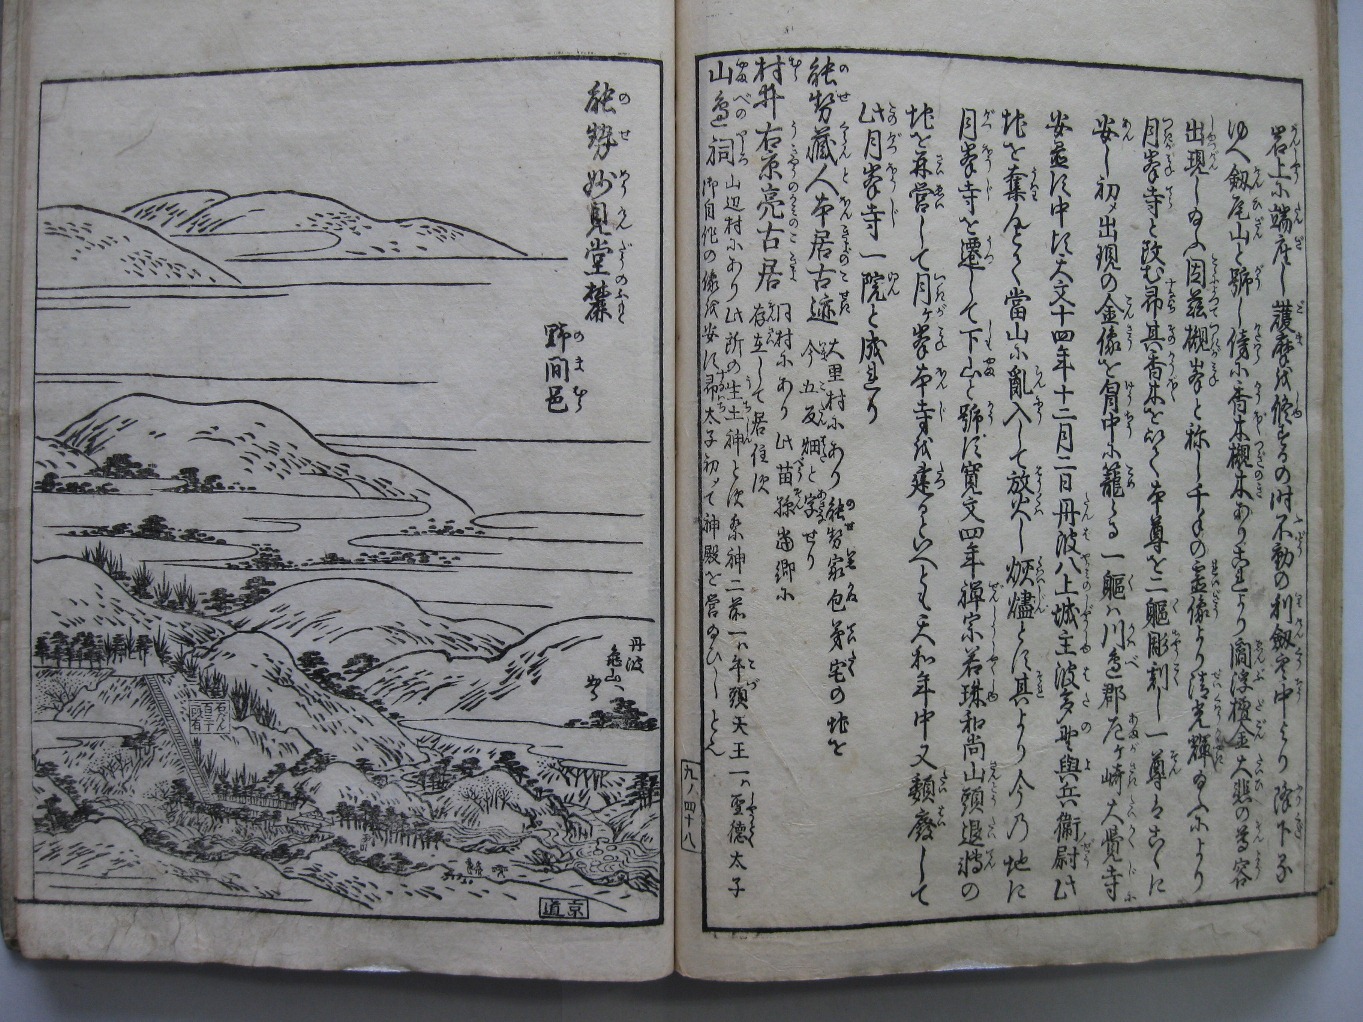 岩上に端座し護摩を修するの時不動の利劔空中より降下る
ゆへ劔尾山と號し傍に香木槻木ありこれより閻浮檀金大悲の尊容
出現し給ふ因茲槻峯と称し千手の霊像より清光輝給ふにより
月峯寺と改む昻其香木を以て本尊を二軀彫刻し一尊はこゝに
安し初メ出現の金像を胷中に籠る一軀ハ川邉郡尼ヶ崎大覺寺に
安置す中に天文十四年十二月二日丹波八上城主波多野與兵衞尉此
地を奪んとて當山に亂入して放火し灰燼とす其より今乃地に
月峯寺を遷して下山と號す寛文四年禪宗若珠和尚山頭退轉の
地を再営して月ヶ峯本寺を建るといへとも天和年中又頽廢して
此月峯寺一院と成れり
能勢藏人本居古迹
大里村にあり能勢家包弟宅の地を
今五反畑と字せり
村井右京亮古居
同村にあり此苗孫當郷に
存在して居住す
山邉祠
山辺村にあり此所の生土神とす祭神二前一ハ牛頭天王一ハ聖徳太子
御自作の像を安す昻太子初て神殿を営給ひしとぞ
九ノ四十八
能勢妙見堂麓
野間邑
丹波
亀山
石だん
百二十
段有
京道